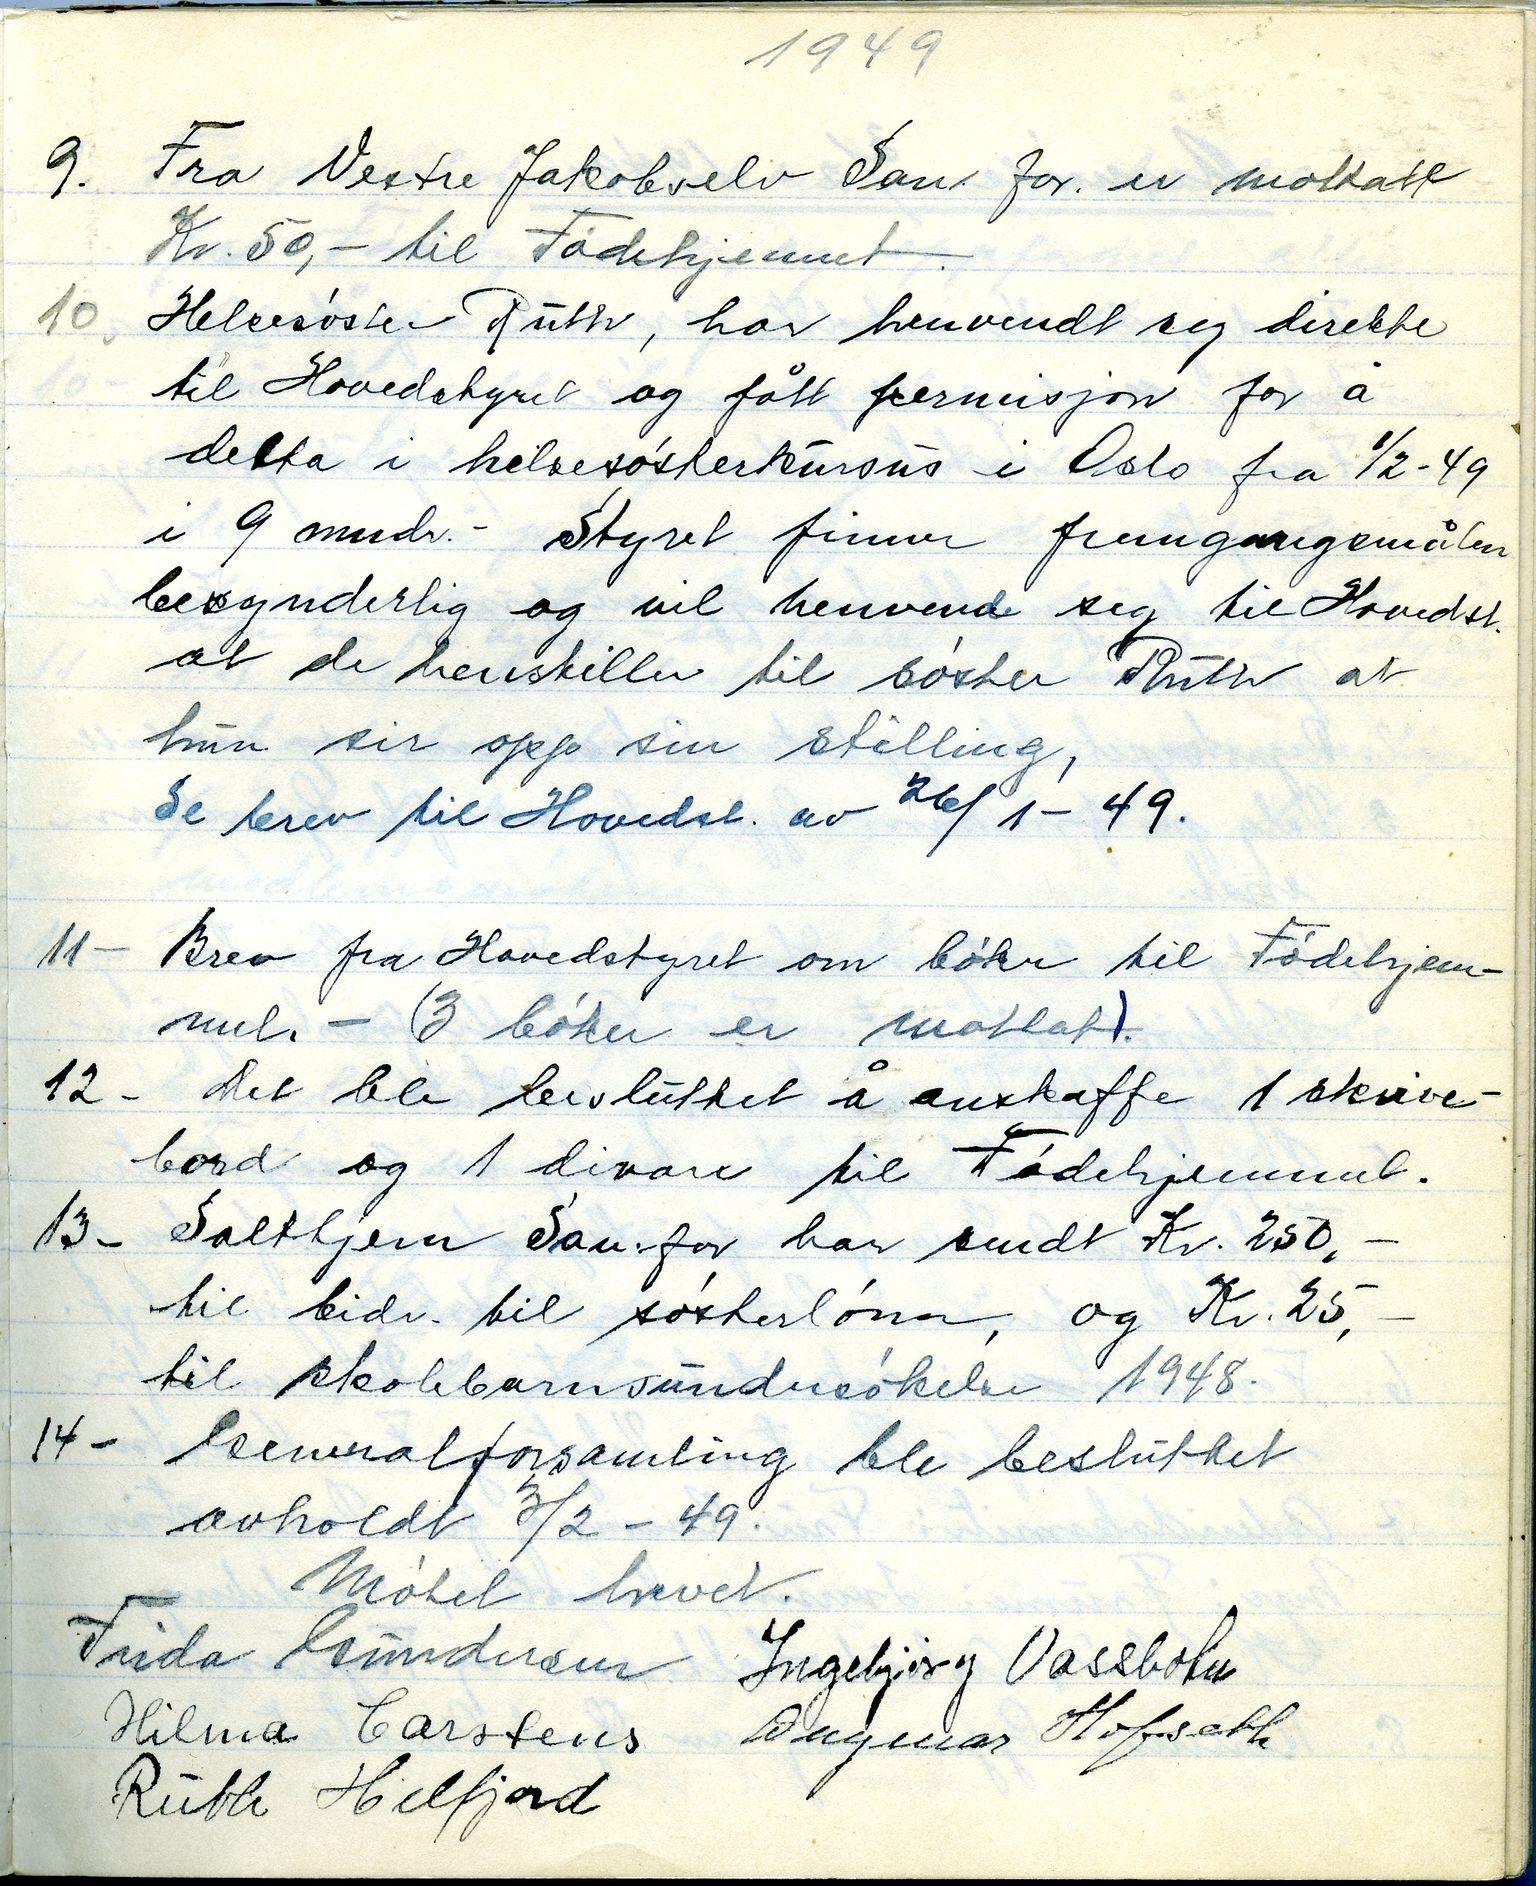 1949
9. Fra Vestre Jakobselv San. for. er mottatt
Kr. 50,- til Födehjemmet.
10. Helsesöster Ruth, har henvendt seg direkte
til Hovedstyret og fått permisjon for å
delta i helsesösterkursus i Oslo fra 1/2-49
i 9 mndr.- Styret finner fremgangsmåten
besynderlig og vil henvende seg til Hovedst.
at de henstiller til söster Ruth at
hun sir opp sin stilling,
Se brev til Hovedst. av 26/1-49.
11- Brev fra Hovedstyret om böker til Födehjem-
met. - (3 böker er mottatt).
12- Det ble besluttet å anskaffe 1 skrive-
bord og 1 divan til Födehjemmet.
13- Salthjem San.for har sendt Kr. 250,-
til bidr. til sösterlönn, og Kr. 25,-
til skolebarnsundersökelse 1948.
14- Generalforsamling ble besluttet
avholdt 3/2-49.
Mötet hevet.
Frida Gundersen Ingebjörg Vassbotn
Hilma Carstens Dagmar Hofseth
Ruth Helfjord